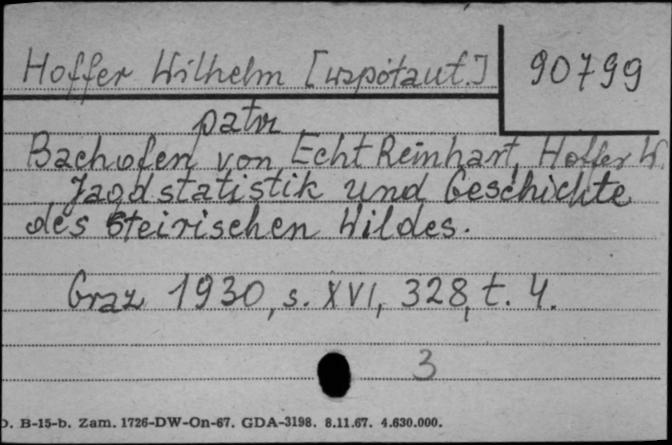 Hoffer Wilhelm [współaut.] 90799
patrz
Bachofen von Echt Reinhart, Hoffer W.
Jagdstatistik und Geschichte
des Steirischen Wildes.
Graz 1930, s. XVI, 328, t. 4.
3
D. B-15-b. Zam. 1726-DW-On-67. GDA-3198. 8.11.67. 4.630.000.